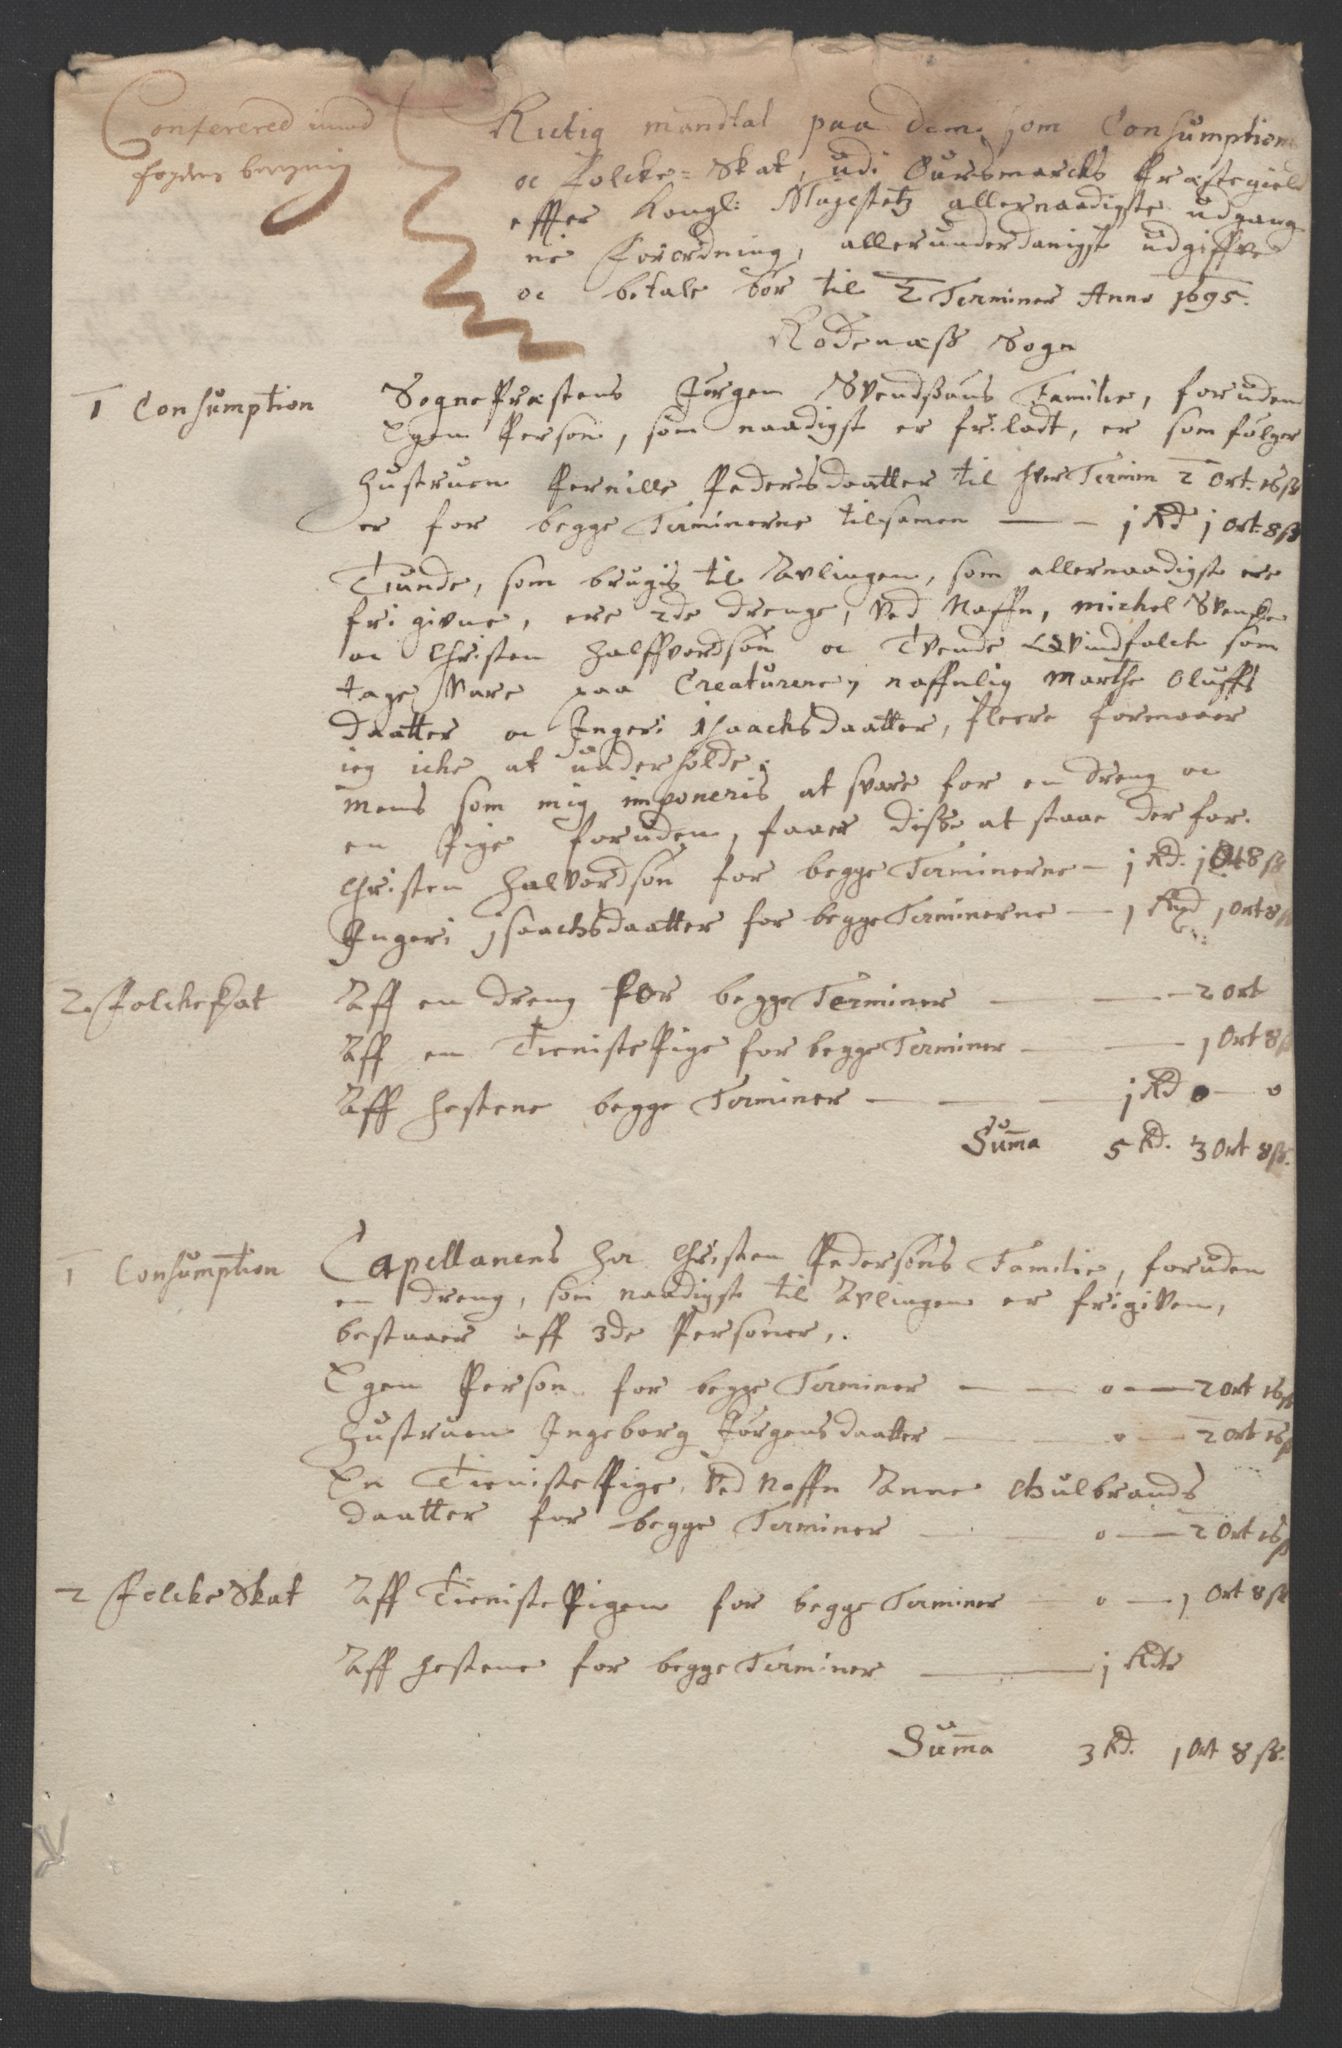 Confereret imod
fogdens
Rictig mandtal paa dem som Consumption
oc Folcke=Skat, udi Oursmarcks Præstegield
effter Kongl: Mayestetz allernaadigste udgang
ne Forordning, allerunderdanigst udgiffve
oc betale bør til 2 Terminer Anno 1695.
Rødenæss Sogn
1 Consumption
SognePræstens Jørgen Svendssøns Familie, foruden
Egen Person, som naadigst er fri ladt, er som følger
Hustruen Pernille Pedersdaatter til hver Termin 2 Ort. 16 ß
er for begge Terminerne tilsamen — 1 Rd 1 Ort 8 ß
Tiunde, som brugis til Avlingen, som allernaadigst ere
fri givne, ere 2de drenge, ved Naffn, Michel Svenske
oc Christen Halffvordsøn oc Tvende Qvindfolck som
tage Vare paa Creaturene, naffnlig Marthe Oluffs
daatter oc Ingeri Isaachsdaatter, fleere formaaer
ieg icke at underholde.
Mens som mig imponeris at svare for en dreng oc
en Pige foruden, faaer disse at staae der for.
Christen Halvordsøn for begge Terminerne — 1 Rd. 1 Ort 8 ß
Ingeri Isaachsdaatter for begge Terminerne — 1 Rd 1 Ort 8 ß
2. Folckeskat
Aff en dreng for begge Terminer — 2 Ort
Aff en Tieniste Pige for begge Terminer — 1 Ort 8 ß
Aff Hestene begge Terminer — 1 Rd 0 — 0
Summa 5 Rd. 3 Ort 8 ß.
1 Consumption
Capellanens Hr Christen Pedersøns Familie, foruden
en dreng, som naadigst til Avlingen er frigiven,
bestaaer aff 3de Personer,.
Egen Person for begge Terminer — 0 — 2 Ort 16 ß
Hustruen Ingeborg Jørgensdaatter — 0 — 2 Ort 16 ß
En Tieniste Pige, Ved Naffn Anne Gulbrands
daatter for begge Terminer — 0 — 2 Ort 16 ß
2 Folcke Skat
Aff Tieniste Pigen for begge Terminer — 0 — 1 Ort 8 ß
Aff Hestene for begge Terminer — 1 Rdr
Summa 3 Rd. 1 Ort 8 ß.